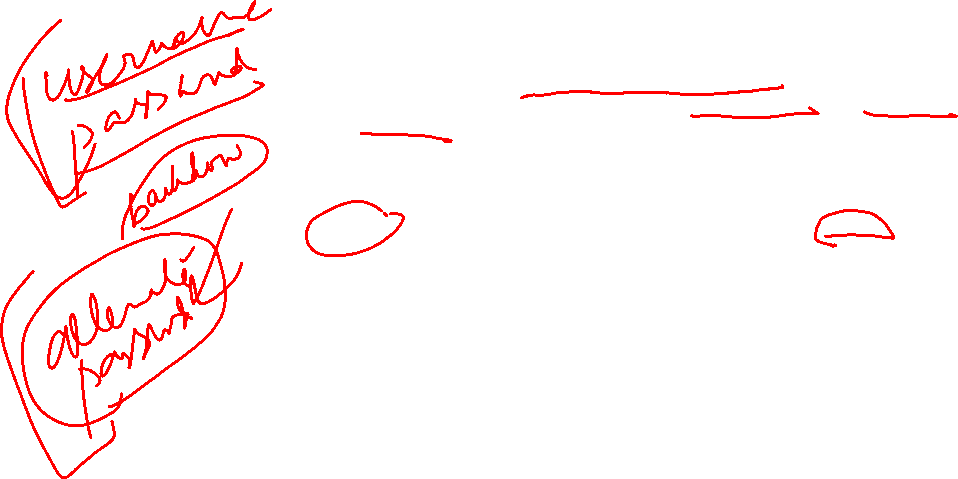 username
password
backdoor
alternative
password